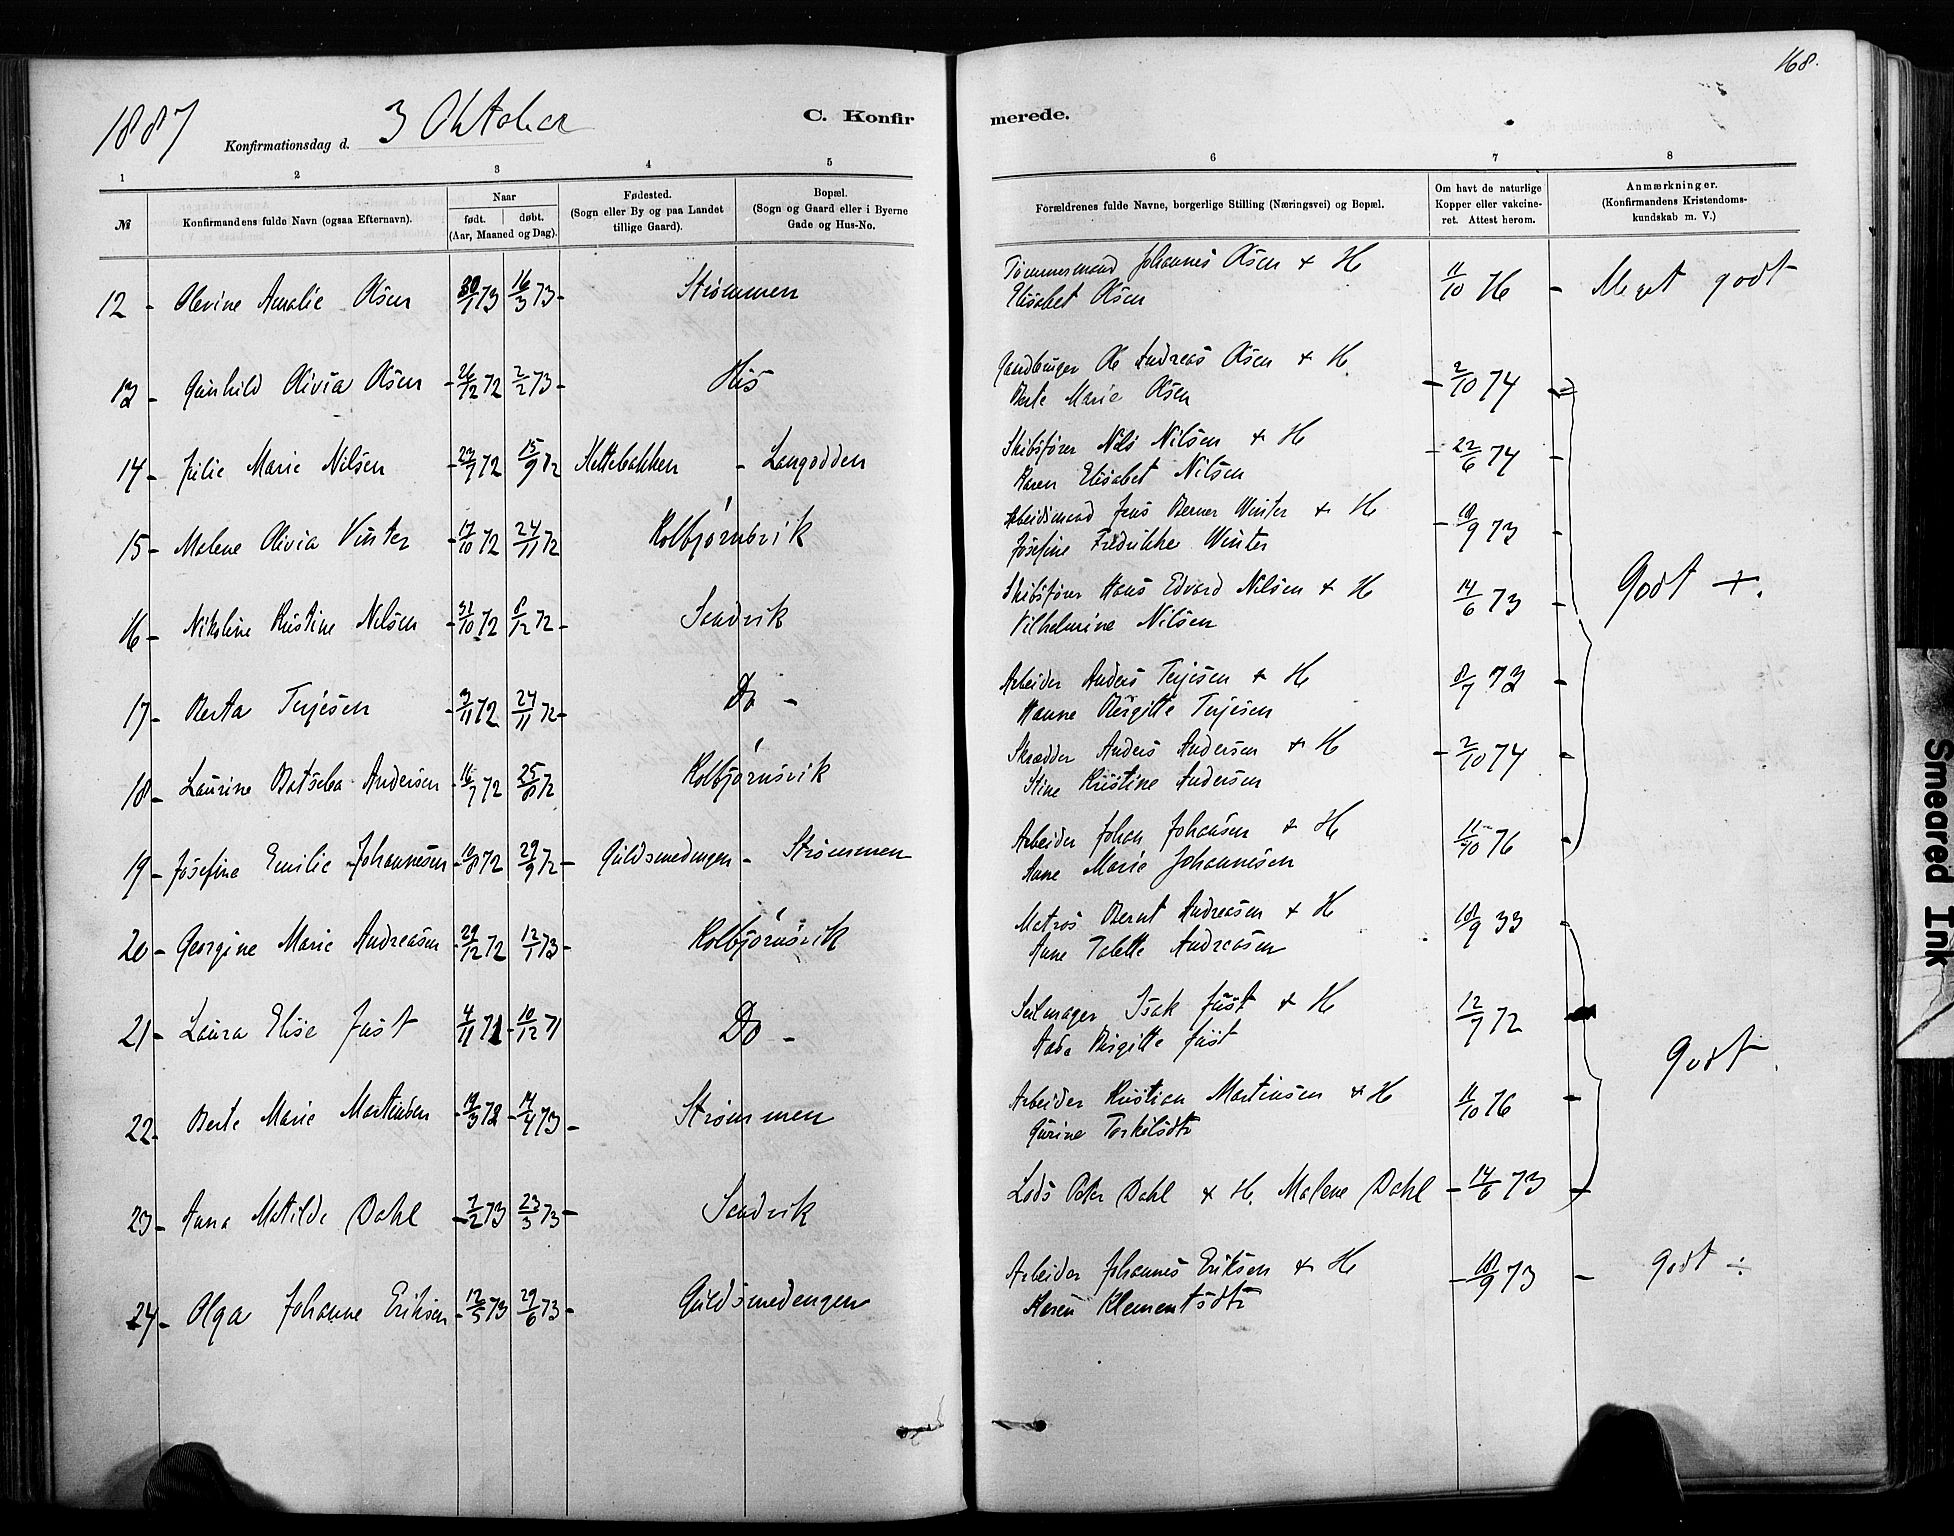 168.
1887
3 Oktober
Konfirmationsdag d.
C. Konfirmerede.
1 2 3 4 5 6 7 8
№
Konfirmandens fulde Navn (ogsaa Efternavn).
Naar
født. døbt.
(Aar, Maaned og Dag).
Fødested.
(Sogn eller By og paa Landet
tillige Gaard).
Bopæl.
(Sogn og Gaard eller i Byerne
Gade og Hus-No.
Forældrenes fulde Navne, borgerlige Stilling (Næringsvei) og Bopæl.
Om havt de naturlige
Kopper eller vakcine-
ret. Attest herom.
Anmærkninger.
(Konfirmandens Kristendoms-
kundskab m. V.)
12 - Olevine Amalie Olsen 30/1 73 16/3 73 - Strømmen Tømmermand Johannes Olsen + H 11/10 76 - Meget godt
Elisabet Olsen
13 - Gunhild Olivia Olsen - 26/12 72 2/2 73 - His Ole Andreas Olsen + H. - 2/10 74 -
Berte Marie Olsen
14 - Julie Marie Nilsen - 23/7 72 15/9 72 Slettebakken - Langodden Skibsfører Nils Nilsen + H - 22/6 74 -
Karen Elisabet Nilsen
15 - Malene Olivia Vinter - 17/10 72 24/11 72 Kolbjørnsvik Arbeidsmand Jens Berner Winter + H - 18/9 73 -
Josefine Fredrikke Winter
16 - Nikoline Kristine Nilsen - 31/10 72 8/12 72 - Sandvik Skibsfører Hans Edvard Nilsen + H 14/6 73 - Godt +.
Vilhelmine Nilsen
17 - Berta Terjesen - 3/11 72 24/11 72 - Do - Arbeider Anders Terjesen + H 8/7 73 -
Hanne Birgitte Terjesen
18 - Laurine Batseba Andersen - 16/7 72 25/8 72 Kolbjørnsvik Skrædder Anders Andersen + H - 2/10 74 -
Stine Kristine Andersen
19 - Josefine Emilie Johannesen - 18/8 72 29/9 72 - Guldsmedengen - Strømmen Arbeider Johan Johansen + H 11/10 76 -
Anne Marie Johannesen
20 - Georgine Marie Andreasen - 29/12 72 12/1 73 - Kolbjørnsvik Matros Bernt Andreasen + H 18/9 33 -
Anne Talette Andreasen
21 - Laura Elise Just 4/11 71 - 10/12 71 Do - Seilmager Isak Just + H 12/7 72 -
Birgitte Just
Godt
22 - Berte Marie Martinsen - 19/3 72 - 14/4 73 - Strømmen Arbeider Kristian Martinsen + H 11/10 76 -
Gurine Torkilsdtr
23 - Anna Matilde Dahl - 7/2 73 23/3 73 - Sandvik Lods Peter Dahl + H. Malene Dahl - 14/6 73 -
24 - Olga Johanne Eriksen - 12/5 73 29/6 73 - Guldsmedengen Arbeider Johannes Eriksen + H - 18/9 73 - godt ÷
Karen Klementsdtr
Smeared Ink